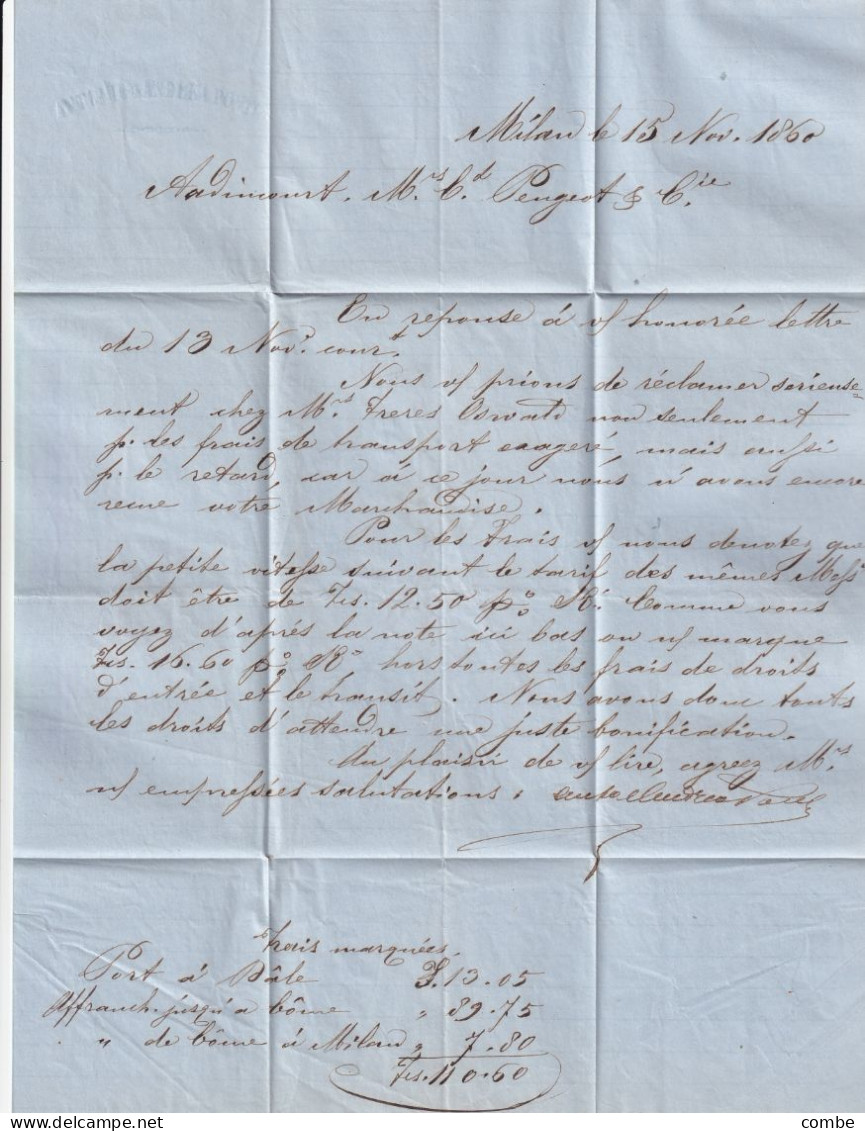 Milan le 15 Nov. 1860
Audincourt. M.rs C.d Peugeot & C.ie
En reponse á v/ honorée lettre
du 13 Nov.e cour.t
Nous v/ prions de réclamer serieuse=
ment chez M.rs Freres Oswald non seulement
p. les frais de transport exageré, mais aussi
p. le retard, car á ce jour nous n'avons encore
recue votre Marchandise.
Pour les Frais v/ nous denotez que
la petite vitesse suivant le tarif des mêmes Mess.rs
doit être de Frs. 12.50 p% K.o Comme vous
voyez d'aprés la note ici bas on n/ marque
Frs. 16.60 p% K.o hors toutes les frais de droits
d'entrée et le transit. Nous avons donc touts
les droits d'attendre une juste bonification.
Au plaisir de v/ lire, agreez M.rs
n/ empressées salutations.
Frais marquées.
Port á Bâle F. 13.05
Affranch. jusqu'a Côme " 89.75
" de Côme á Milan " 7.80
Frs. 110.60
combe